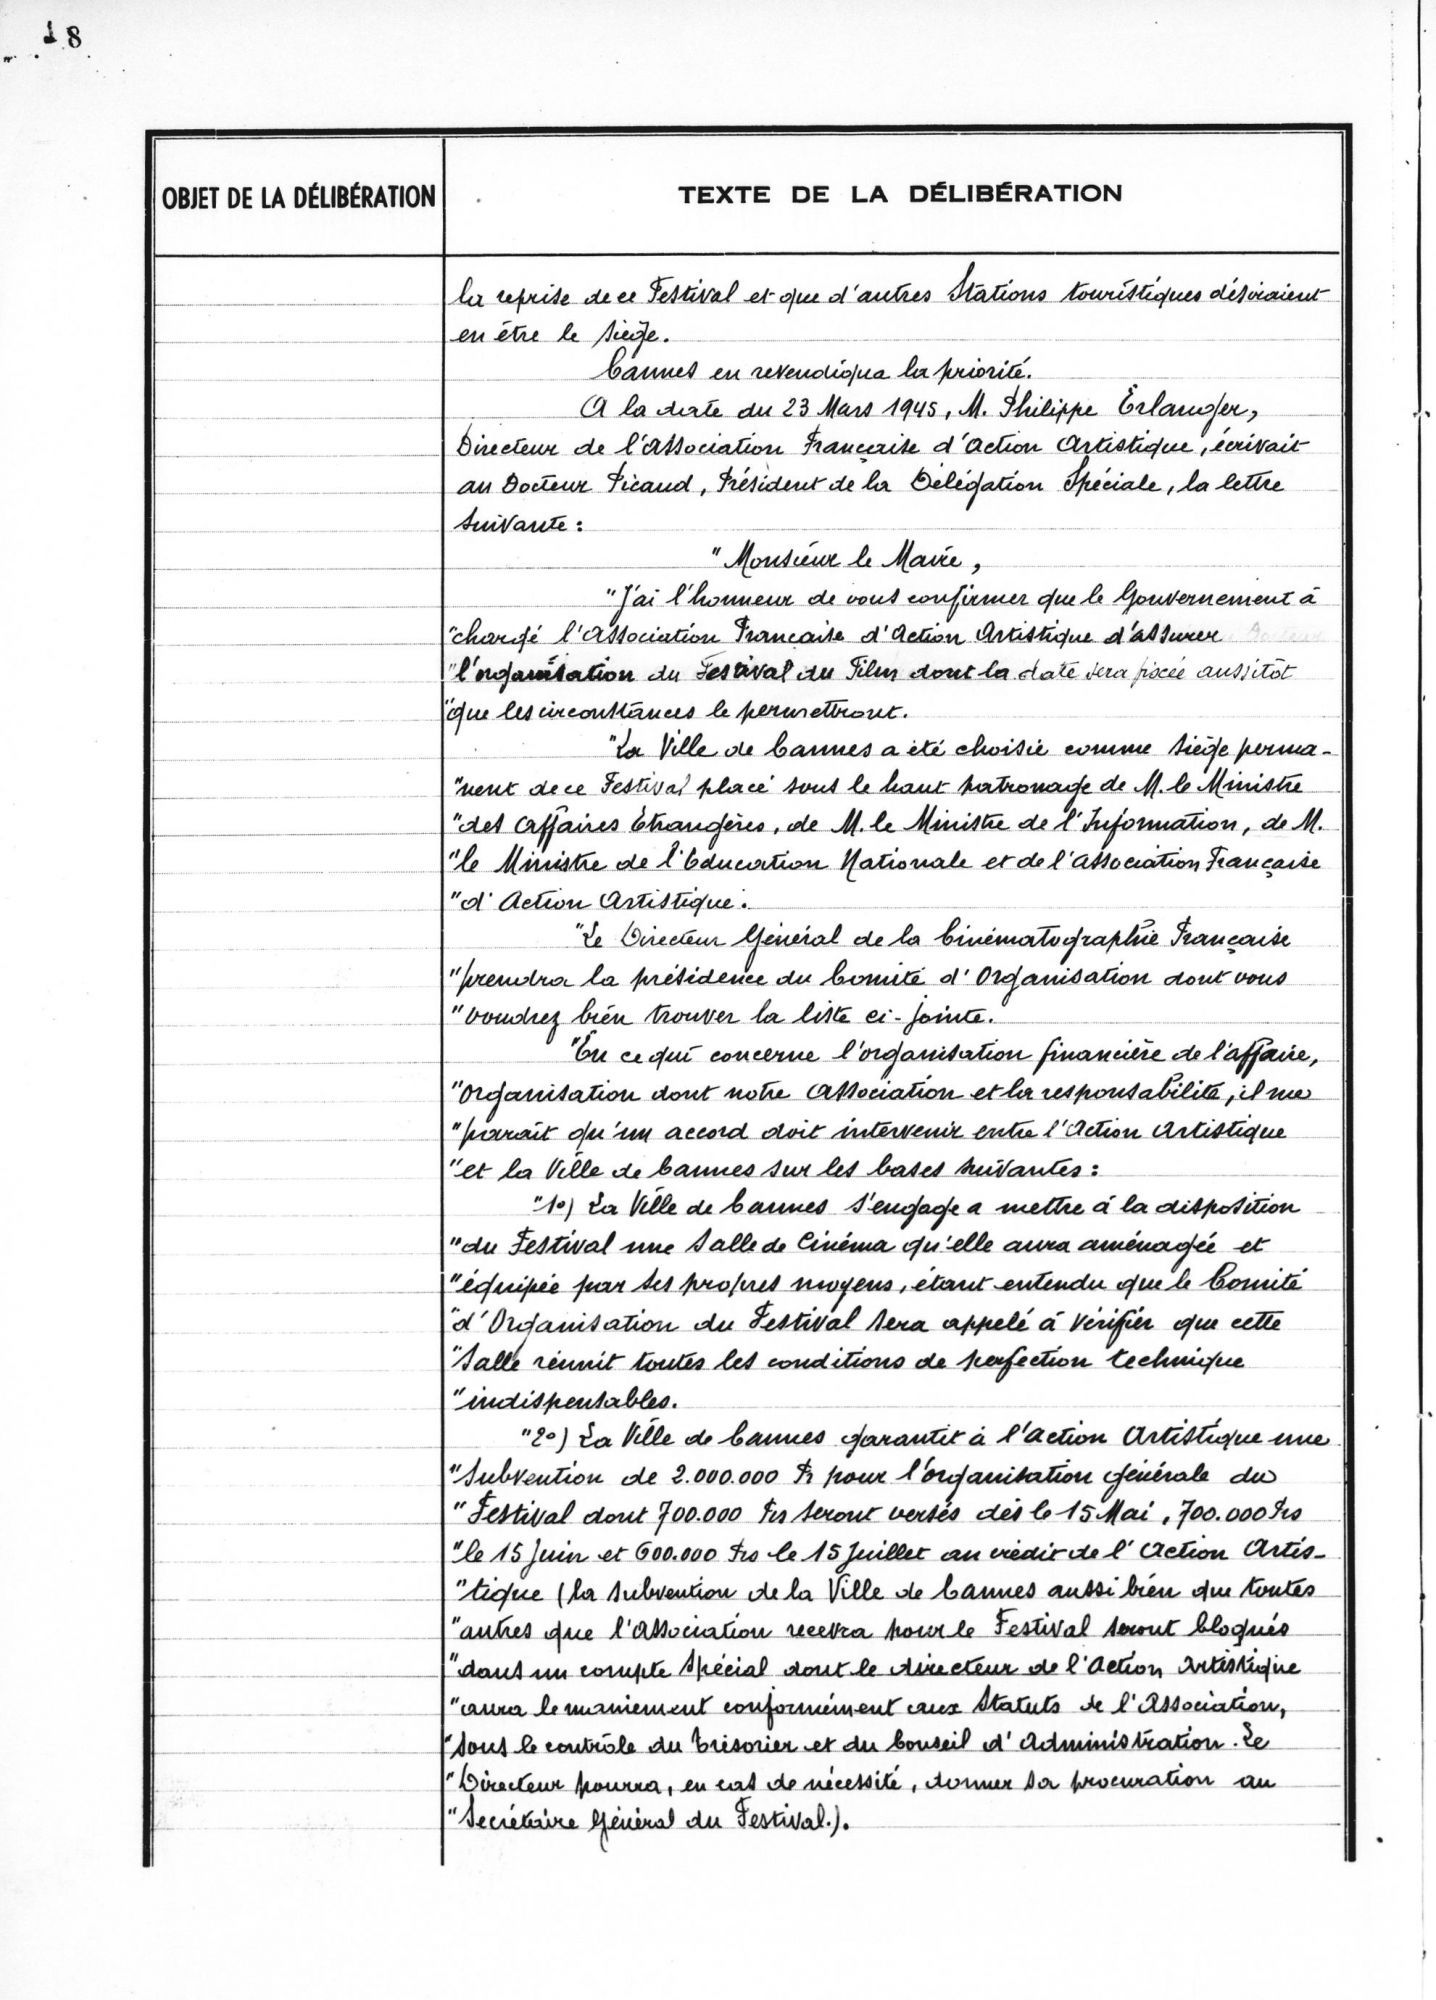 18
OBJET DE LA DÉLIBÉRATION
TEXTE DE LA DÉLIBÉRATION
la reprise de ce Festival et que d'autres Stations touristiques désiraient
en être le siège.
Cannes en revendiqua la priorité.
A la date du 23 Mars 1945, M. Philippe Erlanger,
Directeur de l'Association Française d'Action Artistique, écrivait
au Docteur Picaud, Président de la Délégation Spéciale, la lettre
suivante :
" Monsieur le Maire,
"J'ai l'honneur de vous confirmer que le Gouvernement à
"chargé l'Association Française d'Action Artistique d'assurer
"l'organisation du Festival du Film dont la date sera fixée aussitôt
"que les circonstances le permettront.
"La Ville de Cannes a été choisie comme siège perma-
"nent de ce Festival placé sous le haut patronage de M. le Ministre
"des Affaires Etrangères, de M. le Ministre de l'Information, de M.
"le Ministre de l'Education Nationale et de l'Association Française
"d'Action Artistique.
"Le Directeur Général de la Cinématographie Française
"prendra la présidence du Comité d'Organisation dont vous
"voudrez bien trouver la liste ci-jointe.
"En ce qui concerne l'organisation financière de l'affaire,
"organisation dont notre Association et la responsabilité, il me
"parait qu'un accord doit intervenir entre l'Action Artistique
"et la Ville de Cannes sur les bases suivantes :
"1°) La Ville de Cannes s'engage a mettre à la disposition
"du Festival une salle de Cinéma qu'elle aura aménagée et
"équipée par ses propres moyens, étant entendu que le Comité
"d'Organisation du Festival sera appelé à vérifier que cette
"salle réunit toutes les conditions de perfection technique
"indispensables.
"2°) La Ville de Cannes garantit à l'Action Artistique une
"subvention de 2.000.000 Fr pour l'organisation générale du
"Festival dont 700.000 Frs seront versés dès le 15 Mai, 700.000 Frs
"le 15 Juin et 600.000 Frs le 15 Juillet au crédit de l'Action Artis-
"tique (la subvention de la Ville de Cannes aussi bien que toutes
"autres que l'Association recevra pour le Festival seront bloqués
"dans un compte spécial dont le directeur de l'Action Artistique
"aura le maniement conformément aux Statuts de l'Association,
"sous le contrôle du Trésorier et du Conseil d'Administration. Le
"Directeur pourra, en cas de nécessité, donner sa procuration au
"Secrétaire Général du Festival.).